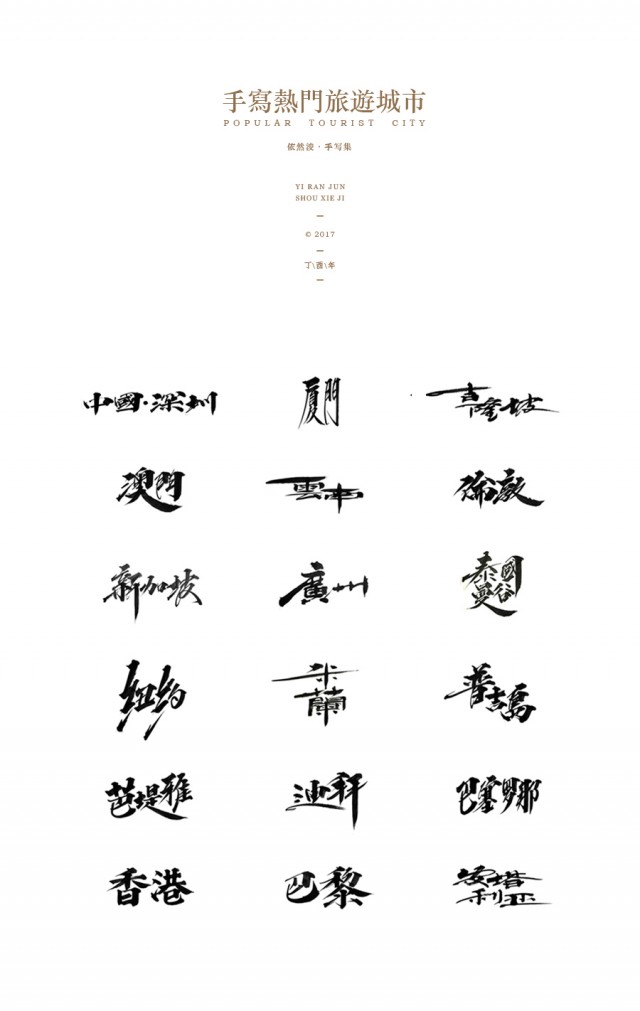 手寫熱門旅遊城市
POPULAR TOURIST CITY
依然浚·手写集
YI RAN JUN
SHOU XIE JI
© 2017
丁\酉\年
中國·深圳
厦門
吉隆坡
澳門
雲南
倫敦
新加坡
廣州
泰國
曼谷
纽约
米蘭
普吉島
芭堤雅
迪拜
巴塞罗那
香港
巴黎
安塔
利亚